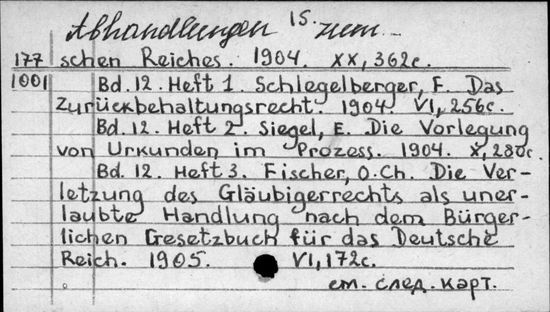 Abhandlungen 15. zum
177 schen Reiches. 1904. XX, 362c.
1001 Bd. 12. Heft 1. Schlegelberger, F. Das
Zurückbehaltungsrecht. 1904. VI, 256c.
Bd. 12. Heft 2. Siegel, E. Die Vorlegung
von Urkunden im Prozess. 1904. X, 280c.
Bd. 12. Heft 3. Fischer, O. Ch. Die Ver-
letzung des Gläubigerrechts als uner-
laubte Handlung nach dem Bürger-
lichen Gesetzbuch für das Deutsche
Reich. 1905. VI, 172c.
см. след. карт.